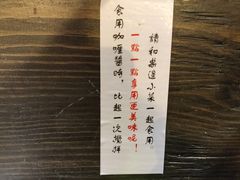 請和樂這小菜一起食用。
一點一點享用更美味吃！
食用咖喱醬時，比起一次攪拌